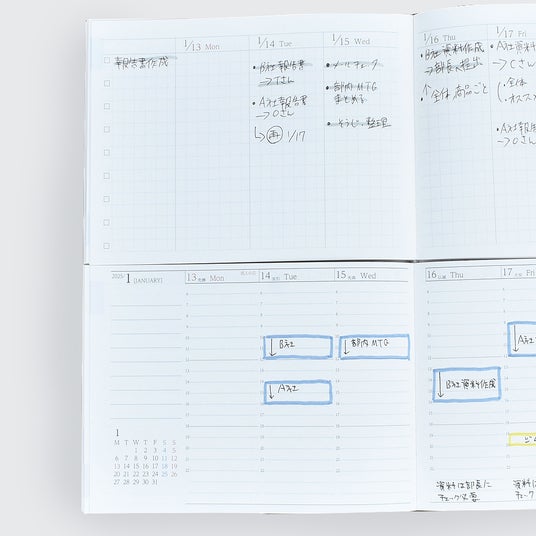 1/13 Mon
1/14 Tue
1/15 Wed
1/16 Thu
1/17 Fri
報告書作成
・B社 報告書
→Tさん
・A社 報告書
→Oさん
↳再 1/17
・メールチェック
・部内 MTG
まとめる
・そうじ、整理
・B社 資料作成
→部長へ提出
↑全体 商品ごと
・A社資料
→Cさん
・全体
・オススメ
・A社報告
→Oさん
2025/1 [JANUARY]
13 Mon
14 Tue
15 Wed
16 Thu
17 Fri
B社
部内 MTG
A社
B社 資料作成
A社
資料は部長に
チェック必要
資料は
チェック
1
M T W T F S S
1 2 3 4 5
6 7 8 9 10 11 12
13 14 15 16 17 18 19
20 21 22 23 24 25 26
27 28 29 30 31